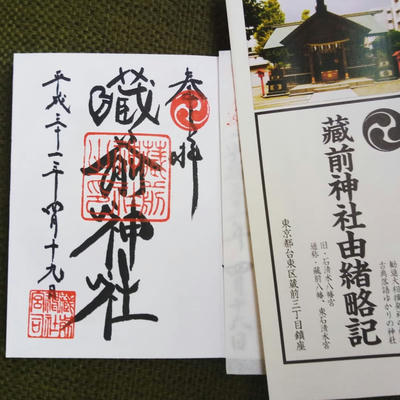 奉拝
藏前神社
平成三十一年四月十九日
勧進大相撲
古典落語ゆかりの神社
藏前神社由緒略記
旧・石清水八幡宮
通称・蔵前八幡、東石清水宮
東京都台東区蔵前三丁目鎮座